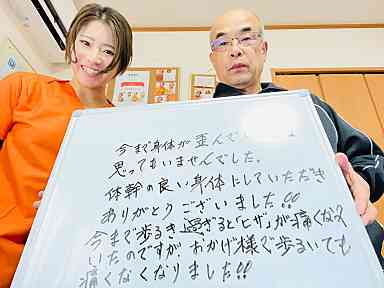 今まで身体が歪んで
思ってもいませんでした。
体幹の良い身体にしていただき
ありがとうございました!!
今まで歩き過ぎると「ヒザ」が痛くなって
いたのですが、おかげ様で歩るいても
痛くなくなりました!!